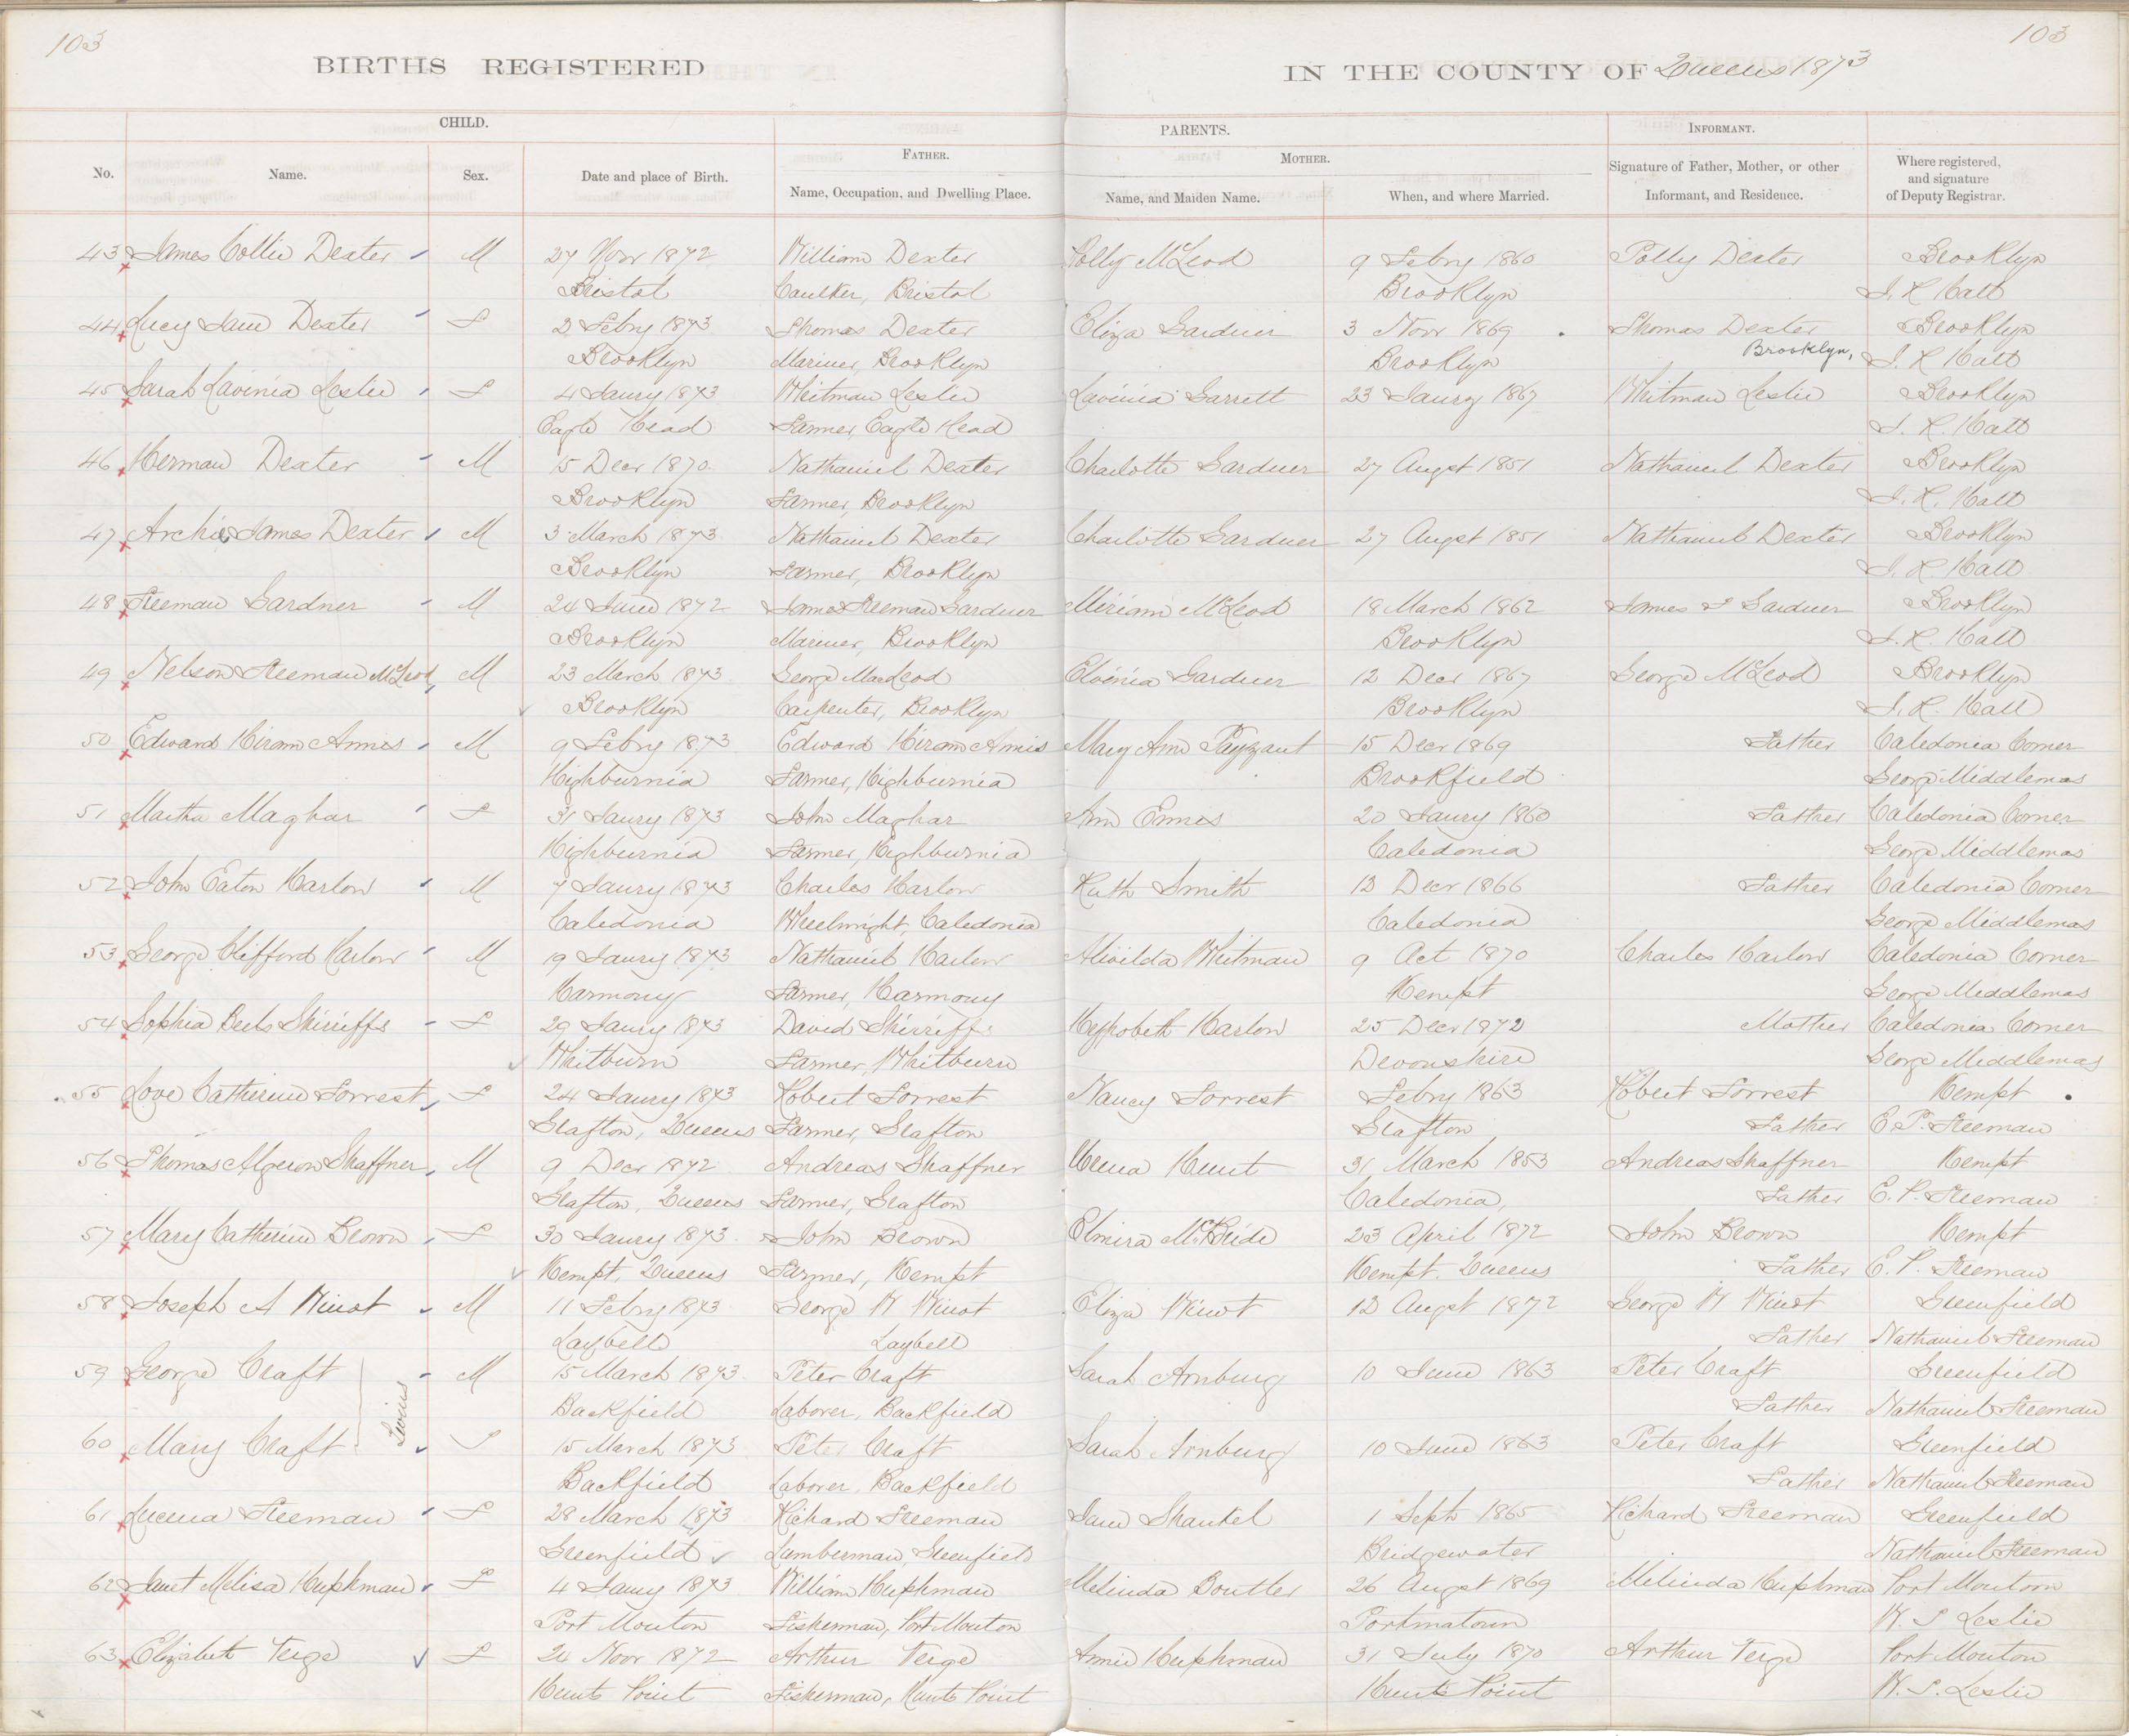 103
103
BIRTHS REGISTERED
IN THE COUNTY OF Queens 1873
CHILD.
PARENTS.
INFORMANT.
No.
Name.
Sex.
Date and place of Birth.
FATHER.
Name, Occupation, and Dwelling Place.
MOTHER.
Name, and Maiden Name.
When, and where Married.
Signature of Father, Mother, or other
Informant, and Residence.
Where registered,
and signature
of Deputy Registrar.
43 James Collie Dexter M 27 Novr 1872 William Dexter Polly McLeod 9 Febry 1860 Polly Dexter Brooklyn
Bristol Caulker, Bristol Brooklyn
44 Lucy Jane Dexter F 2 Febry 1873 Thomas Dexter Eliza Gardner 3 Novr 1869 Thomas Dexter Brooklyn
Brooklyn Mariner, Brooklyn Brooklyn Brooklyn,
45 Sarah Lavinia Leslie F 4 Janry 1873 Whitman Leslie Lavinia Garrett 23 Janry 1867 Whitman Leslie Brooklyn
Eagle Head Farmer, Eagle Head
46 Herman Dexter M 15 Decr 1870 Nathaniel Dexter Charlotte Gardner 27 Augst 1851 Nathaniel Dexter Brooklyn
Brooklyn Farmer, Brooklyn
47 Archie James Dexter M 3 March 1873 Nathaniel Dexter Charlotte Gardner 27 Augst 1851 Nathaniel Dexter Brooklyn
Brooklyn Farmer, Brooklyn
48 Freeman Gardner M 24 June 1872 James Freeman Gardner Miriam McLeod 18 March 1862 James F Gardner Brooklyn
Brooklyn Mariner, Brooklyn Brooklyn
49 Nelson Freeman McLeod M 23 March 1873 George MacLeod Elvinia Gardner 12 Decr 1867 George McLeod Brooklyn
Brooklyn Carpenter, Brooklyn Brooklyn
50 Edward Hiram Annis M 9 Febry 1873 Edward Hiram Annis Mary Ann Payzant 15 Decr 1869 Father Caledonia Corner
Highburnia Farmer, Highburnia Brookfield George Middlemas
51 Martha Maghar F 31 Janry 1873 John Maghar Ann Ennis 20 Janry 1860 Father Caledonia Corner
Highburnia Farmer, Highburnia Caledonia George Middlemas
52 John Eaton Harlow M 7 Janry 1873 Charles Harlow Ruth Smith 13 Decr 1866 Father Caledonia Corner
Caledonia Wheelwright, Caledonia Caledonia George Middlemas
53 George Clifford Harlow M 19 Janry 1873 Nathaniel Harlow Alivilda Whitman 9 Oct 1870 Charles Harlow Caledonia Corner
Harmony Farmer, Harmony Kempt George Middlemas
54 Sophia Beels Shirriffs F 29 Janry 1873 David Shirriffs Hephzbeth Harlow 25 Decr 1872 Mother Caledonia Corner
Whitburn Farmer, Whitburn Devonshire George Middlemas
55 Love Catherine Forrest F 24 Janry 1873 Robert Forrest Nancy Forrest Febry 1863 Robert Forrest Kempt
Grafton, Queens Farmer, Grafton Grafton Father E. P. Freeman
56 Thomas Algeron Shaffner M 9 Decr 1872 Andreas Shaffner Unena Hunt 31 March 1853 Andreas Shaffner Kempt
Grafton, Queens Farmer, Grafton Caledonia, Father E. P. Freeman
57 Mary Catherine Brown F 30 Janry 1873 John Brown Elmira McBride 23 April 1872 John Brown Kempt
Kempt, Queens Farmer, Kempt Kempt. Queens Father E. P. Freeman
58 Joseph A Winot M 11 Febry 1873 George W Winot Eliza Winot 13 Augst 1872 George W Winot Greenfield
Laybell Laybell Father Nathaniel Freeman
59 George Craft M 15 March 1873 Peter Craft Sarah Arnburg 10 June 1863 Peter Craft Greenfield
Twins
Backfield Laborer, Backfield Father Nathaniel Freeman
60 Mary Craft F 15 March 1873 Peter Craft Sarah Arnburg 10 June 1863 Peter Craft Greenfield
Backfield Laborer, Backfield Father Nathaniel Freeman
61 Lucena Freeman F 28 March 1873 Richard Freeman Jane Shankel 1 Sept 1865 Richard Freeman Greenfield
Greenfield Lumberman, Greenfield Bridgewater Nathaniel Freeman
62 Janet Melisa Huphman F 4 Janry 1873 William Huphman Melinda Boutler 26 Augst 1869 Melinda Huphman Port Moutoon
Port Mouton Fisherman, Port Mouton Portmatoun W. S. Leslie
63 Elizabeth Verge F 24 Novr 1872 Arthur Verge Annie Huphman 31 July 1870 Arthur Verge Port Mouton
Hunts Point Fisherman, Hunts Point Hunts Point W. S. Leslie